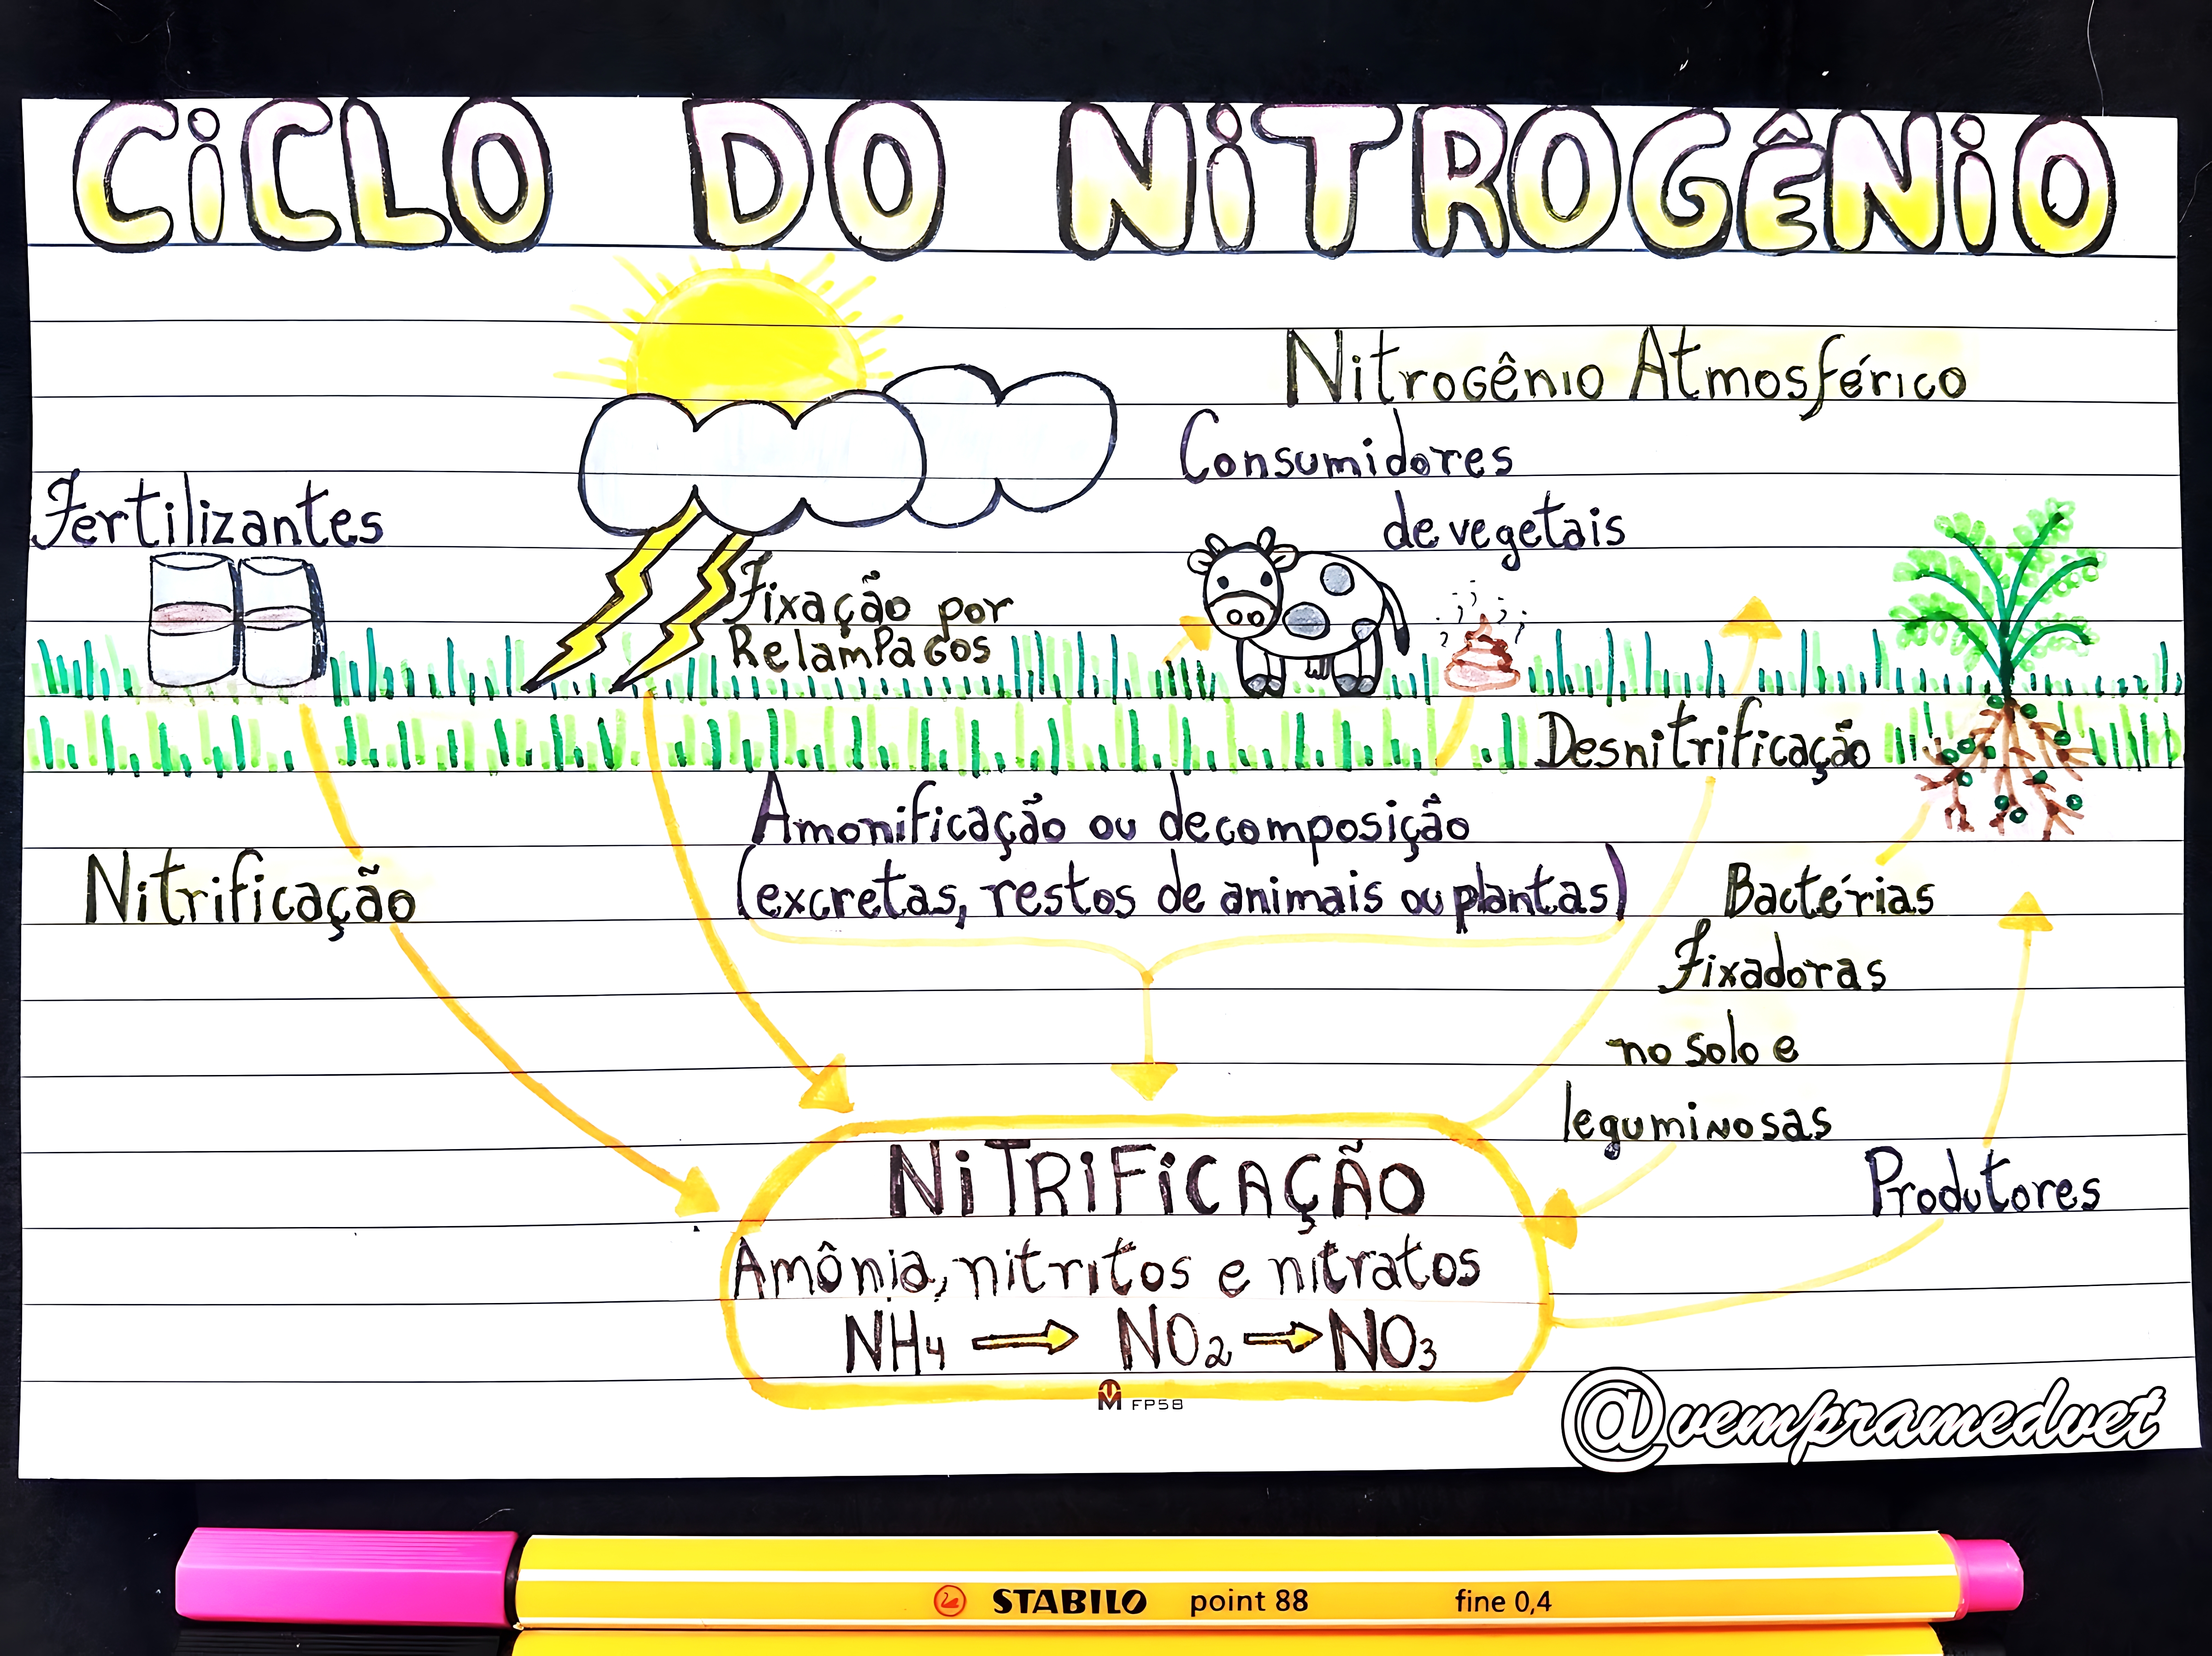 CiCLO DO NiTROGÊNiO
Nitrogênio Atmosférico
Consumidores
de vegetais
Fertilizantes
Fixação por
Relampagos
Desnitrificação
Amonificação ou decomposição
(excretas, restos de animais ou plantas)
Nitrificação
Bactérias
Fixadoras
no solo e
leguminosas
Produtores
NiTRiFiCAÇÃO
Amônia, nitritos e nitratos
NH4 → NO2 → NO3
FP58
@vemprameduet
STABILO point 88 fine 0,4